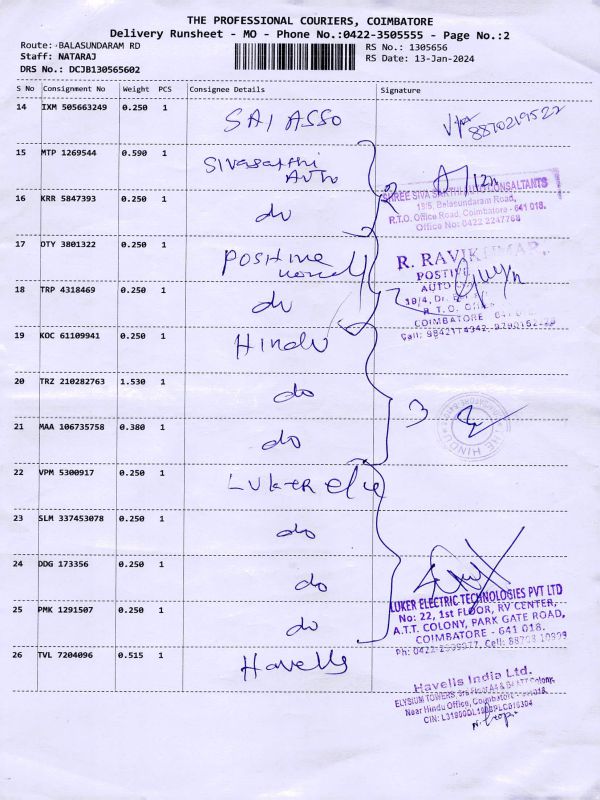 THE PROFESSIONAL COURIERS, COIMBATORE
Delivery Runsheet - MO - Phone No.:0422-3505555 - Page No.:2
Route: BALASUNDARAM RD
RS No.: 1305656
Staff: NATARAJ
RS Date: 13-Jan-2024
DRS No.: DCJB130565602
S No Consignment No Weight PCS Consignee Details Signature
14 IXM 505663249 0.250 1 SAI ASSO
15 MTP 1269544 0.590 1 Sivasakthi Auto
16 KRR 5847393 0.250 1 do
2
SHREE SIVA SAKTHI AUTO CONSULTANTS
Balasundaram Road,
R.T.O. Office Road, Coimbatore - 641 018.
Office No: 0422 2247768
17 OTY 3801322 0.250 1 Positive
18 TRP 4318469 0.250 1 do
2
R. RAVIKUMAR
POSTIVE
AUTO
R.T.O.
COIMBATORE
19 KOC 61109941 0.250 1 Hindu
20 TRZ 210282763 1.530 1 do
21 MAA 106735758 0.380 1 do
3
THE HINDU
22 VPM 5300917 0.250 1 Luker ele
23 SLM 337453078 0.250 1 do
24 DDG 173356 0.250 1 do
25 PMK 1291507 0.250 1 do
LUKER ELECTRIC TECHNOLOGIES PVT LTD
No: 22, 1st FLOOR, RV CENTER,
A.T.T. COLONY, PARK GATE ROAD,
COIMBATORE - 641 018.
26 TVL 7204096 0.515 1 Havells
Havells India Ltd.
ELYSIUM TOWERS,
Near Hindu Office, Coimbatore